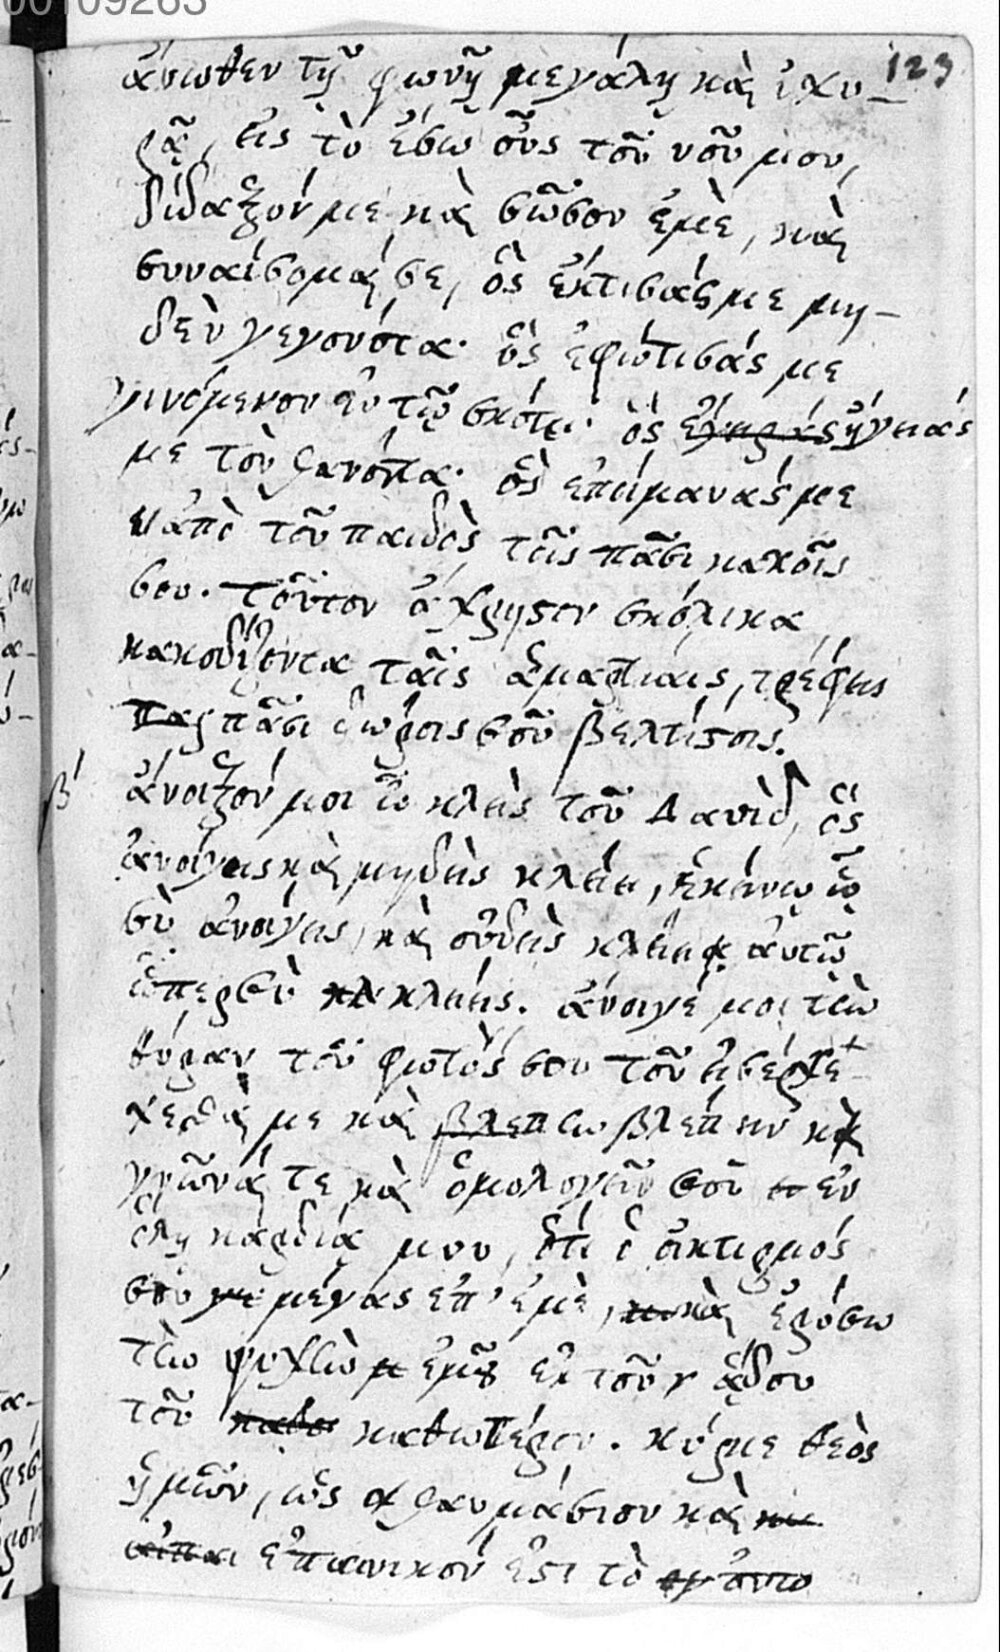 00109263
123
ἄνωθεν τῇ φωνῇ μεγάλῃ καὶ ἰχυ-
ρᾷ, εἰς τὸ ἔσω οὖς τοῦ νοῦ μου,
δίδαξόν με καὶ σῶσον ἐμὲ, καὶ
συναίσομαί σε, ὃς ἔκτισάς με μη-
δὲν γεγονότα· ὃς ἐφώτισάς με
γινόμενον ἐν τῷ σκότει· ὃς ἤγειράς
με τὸν θανόντα· ὃς ἐποίμανάς με
ἀπὸ τοῦ παιδὸς τοῖς πᾶσι καλοῖς
σου. τοῦτον ἄχρηστον σκόλικα
κακοδίζοντα ταῖς ἁμαρτίαις, τρέφεις
πᾶσι δώροις σοῦ βελτίστοις.
β΄
ἄνοιξόν μοι ὦ κλεὶς τοῦ Δαυὶδ, ὃς
ἀνοίγεις καὶ μηδεὶς κλείει, ἐκείνῳ ᾧ
σὺ ἀνοίγεις, καὶ οὐδεὶς κλείει αὐτῷ
ὅπερ σὺ κλείεις. ἄνοιγέ μοι τὴν
θύραν τοῦ φωτός σου τοῦ εἰσέρ
χεσθαί με καὶ βλέπειν καὶ
γνῶναί τε καὶ ὁμολογεῖν σοῦ ἐν
ὅλῃ καρδίᾳ μου, ὅτι ὁ οἰκτιρμός
σου μέγας ἐπ' ἐμὲ, καὶ ἐρύσω
τὴν ψυχὴν ἐμοῦ ἐκ τοῦ ᾅδου
τοῦ κατωτέρου. κύριε θεὸς
ἡμῶν, ὡς θαυμάσιον καὶ
ἐπαινικόν ἐστι τὸ